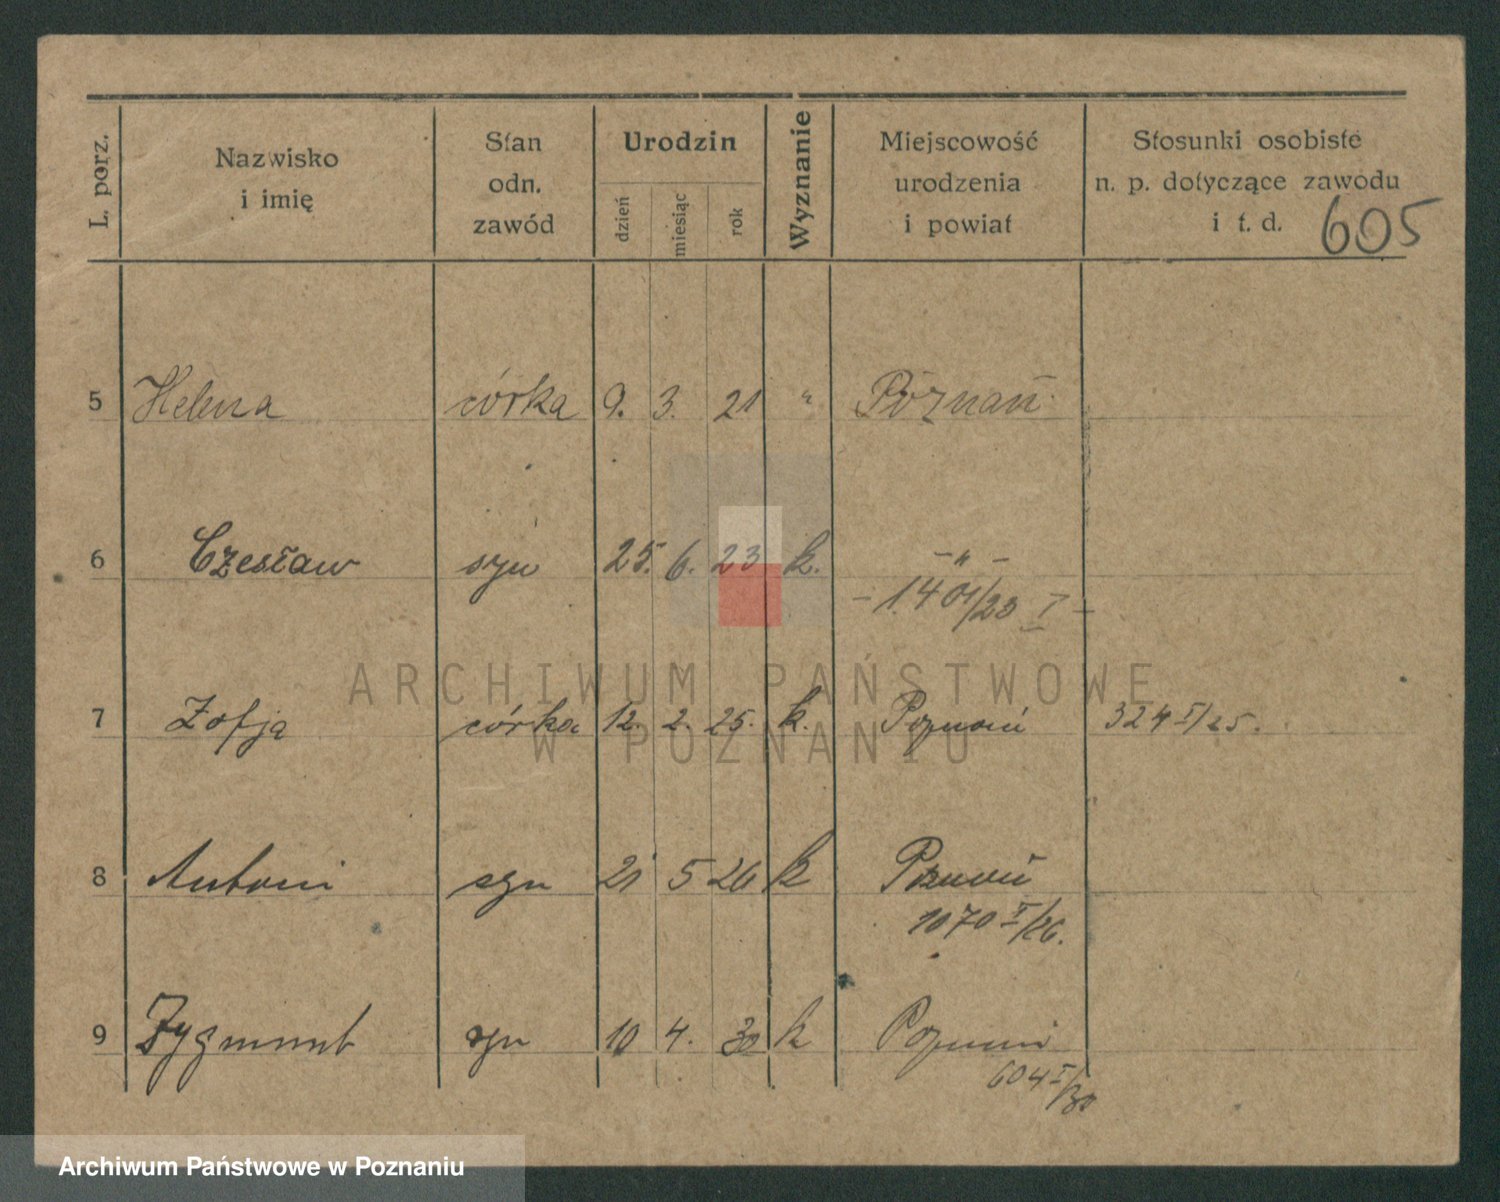 L. porz.
Nazwisko
i imię
Stan
odn.
zawód
Urodzin
dzień
miesiąc
rok
Wyznanie
Miejscowość
urodzenia
i powiat
Stosunki osobiste
n. p. dotyczące zawodu
i t. d.
605
5 Helena córka 9. 3. 21 " Poznań
6 Czesław syn 25. 6. 23 k. - " -
- 1401/23 I -
7 Zofja córka 12. 2. 25. k. Poznań 324 I/25.
8 Antoni syn 21 5 26 k Poznań
1070 I/26.
9 Zygmunt syn 10 4. 30 k Poznań
604 I/30
ARCHIWUM PAŃSTWOWE
W POZNANIU
Archiwum Państwowe w Poznaniu